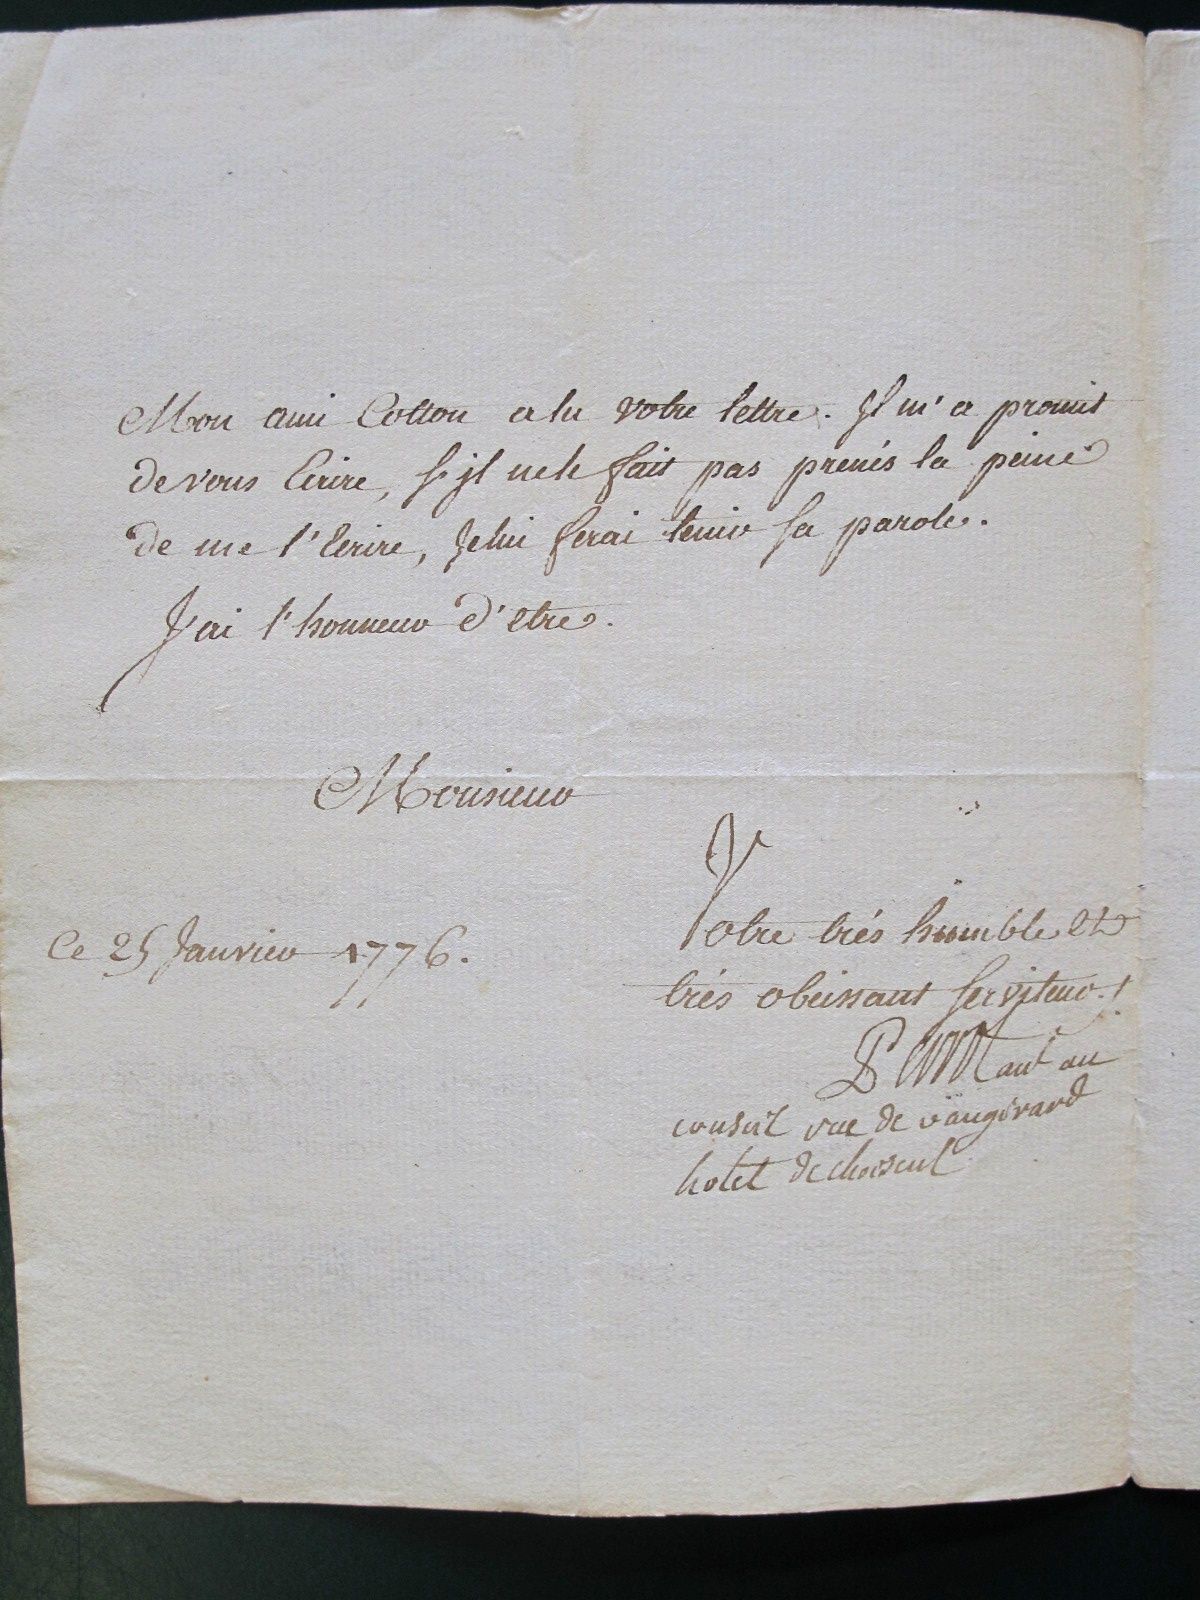 Mon ami Cotton a lu votre lettre. Jl m'a promit
de vous Ecrire, s'jl ne le fait pas prenés la peine
de me l'Ecrire, Je lui ferai tenir sa parole.
J'ai l'honneur d'etre.
Monsieur
Votre trés humble et
Ce 25 Janvier 1776.
trés obeissant serviteur.
au
conseil rue de vaugirard
hotel de choiseul